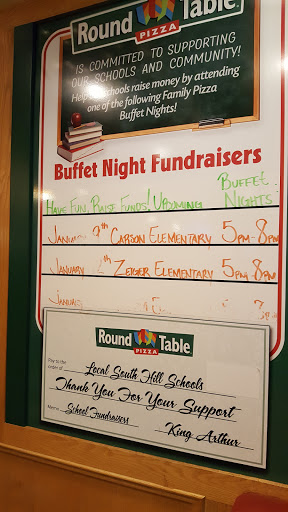 Round Table
PIZZA
IS COMMITTED TO SUPPORTING
OUR SCHOOLS AND COMMUNITY!
Schools raise money by attending
one of the following Family Pizza
Buffet Nights!
Buffet Night Fundraisers
HAVE FUN, RAISE FUNDS! UPCOMING BUFFET NIGHTS
9th CARSON ELEMENTARY 5PM-8PM
JANUARY ZEIGER ELEMENTARY 5PM-8PM
Round Table
PIZZA
Pay to the
order of Local South Hill Schools
Thank You For Your Support
Memo School Fundraisers King Arthur